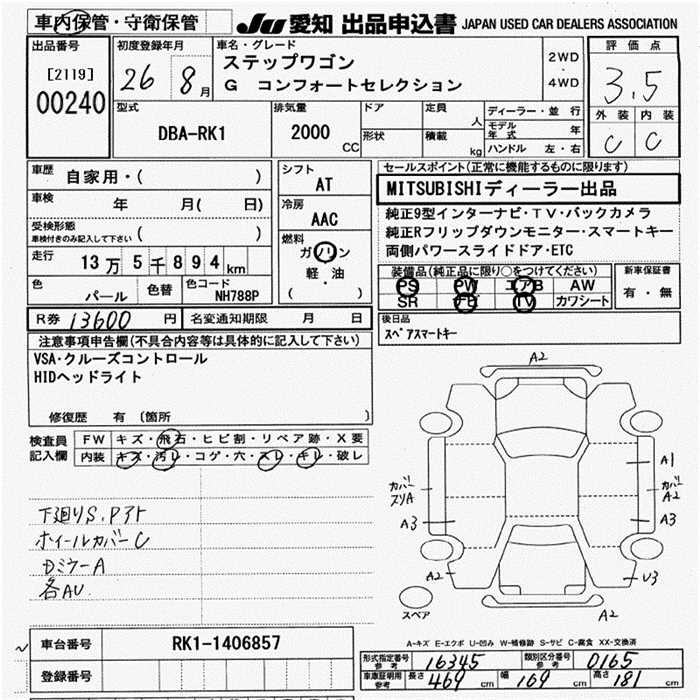 車内保管・守衛保管
JU 愛知 出品申込書 JAPAN USED CAR DEALERS ASSOCIATION
出品番号
[2119]
00240
初度登録年月
26 8月
車名・グレード
ステップワゴン
G コンフォートセレクション
2WD
・
4WD
評価点
3.5
外装 内装
C C
型式
DBA-RK1
排気量
2000
CC
ドア
形状
定員
人
積載
kg
ディーラー・並行
モデル年式 年
ハンドル 左・右
車歴 自家用・( )
車検 年 月( 日)
受検形態
車検付きのみ記入して下さい ( )
走行 13万5千894km
色 パール
色替
色コード NH788P
シフト
AT
冷房
AAC
燃料
ガソリン
軽・油
( )
セールスポイント(正常に機能するものに限ります)
MITSUBISHIディーラー出品
純正9型インターナビ・TV・バックカメラ
純正Rフリップダウンモニター・スマートキー
両側パワースライドドア・ETC
装備品(純正品に限り○をつけてください)
PS PW エアB AW
SR ナビ TV カワシート
新車保証書
有・無
R券 13600円
名変通知期限 月 日
後日品
スペアスマートキー
注意事項申告欄(不具合内容等は具体的に記入して下さい)
VSA・クルーズコントロール
HIDヘッドライト
修復歴 有 (箇所 )
検査員記入欄
FW キズ・飛石・ヒビ割・リペア跡・X要
内装 キズ・汚レ・コゲ・穴・スレ・キレ・破レ
下廻りS.Pアト
ホイールカバーC
DミラーA
各AU
A2
A1
カバースリA
カバーA2
A3
A3
A2
U3
スペア
A2
A-キズ E-エクボ U-凹み W-補修跡 S-サビ C-腐食 XX-交換済
車台番号 RK1-1406857
登録番号
形式指定番号 参考 16345
類別区分番号 参考 0165
車庫証明用 参考 長さ 469cm 幅 169cm 高さ 181cm